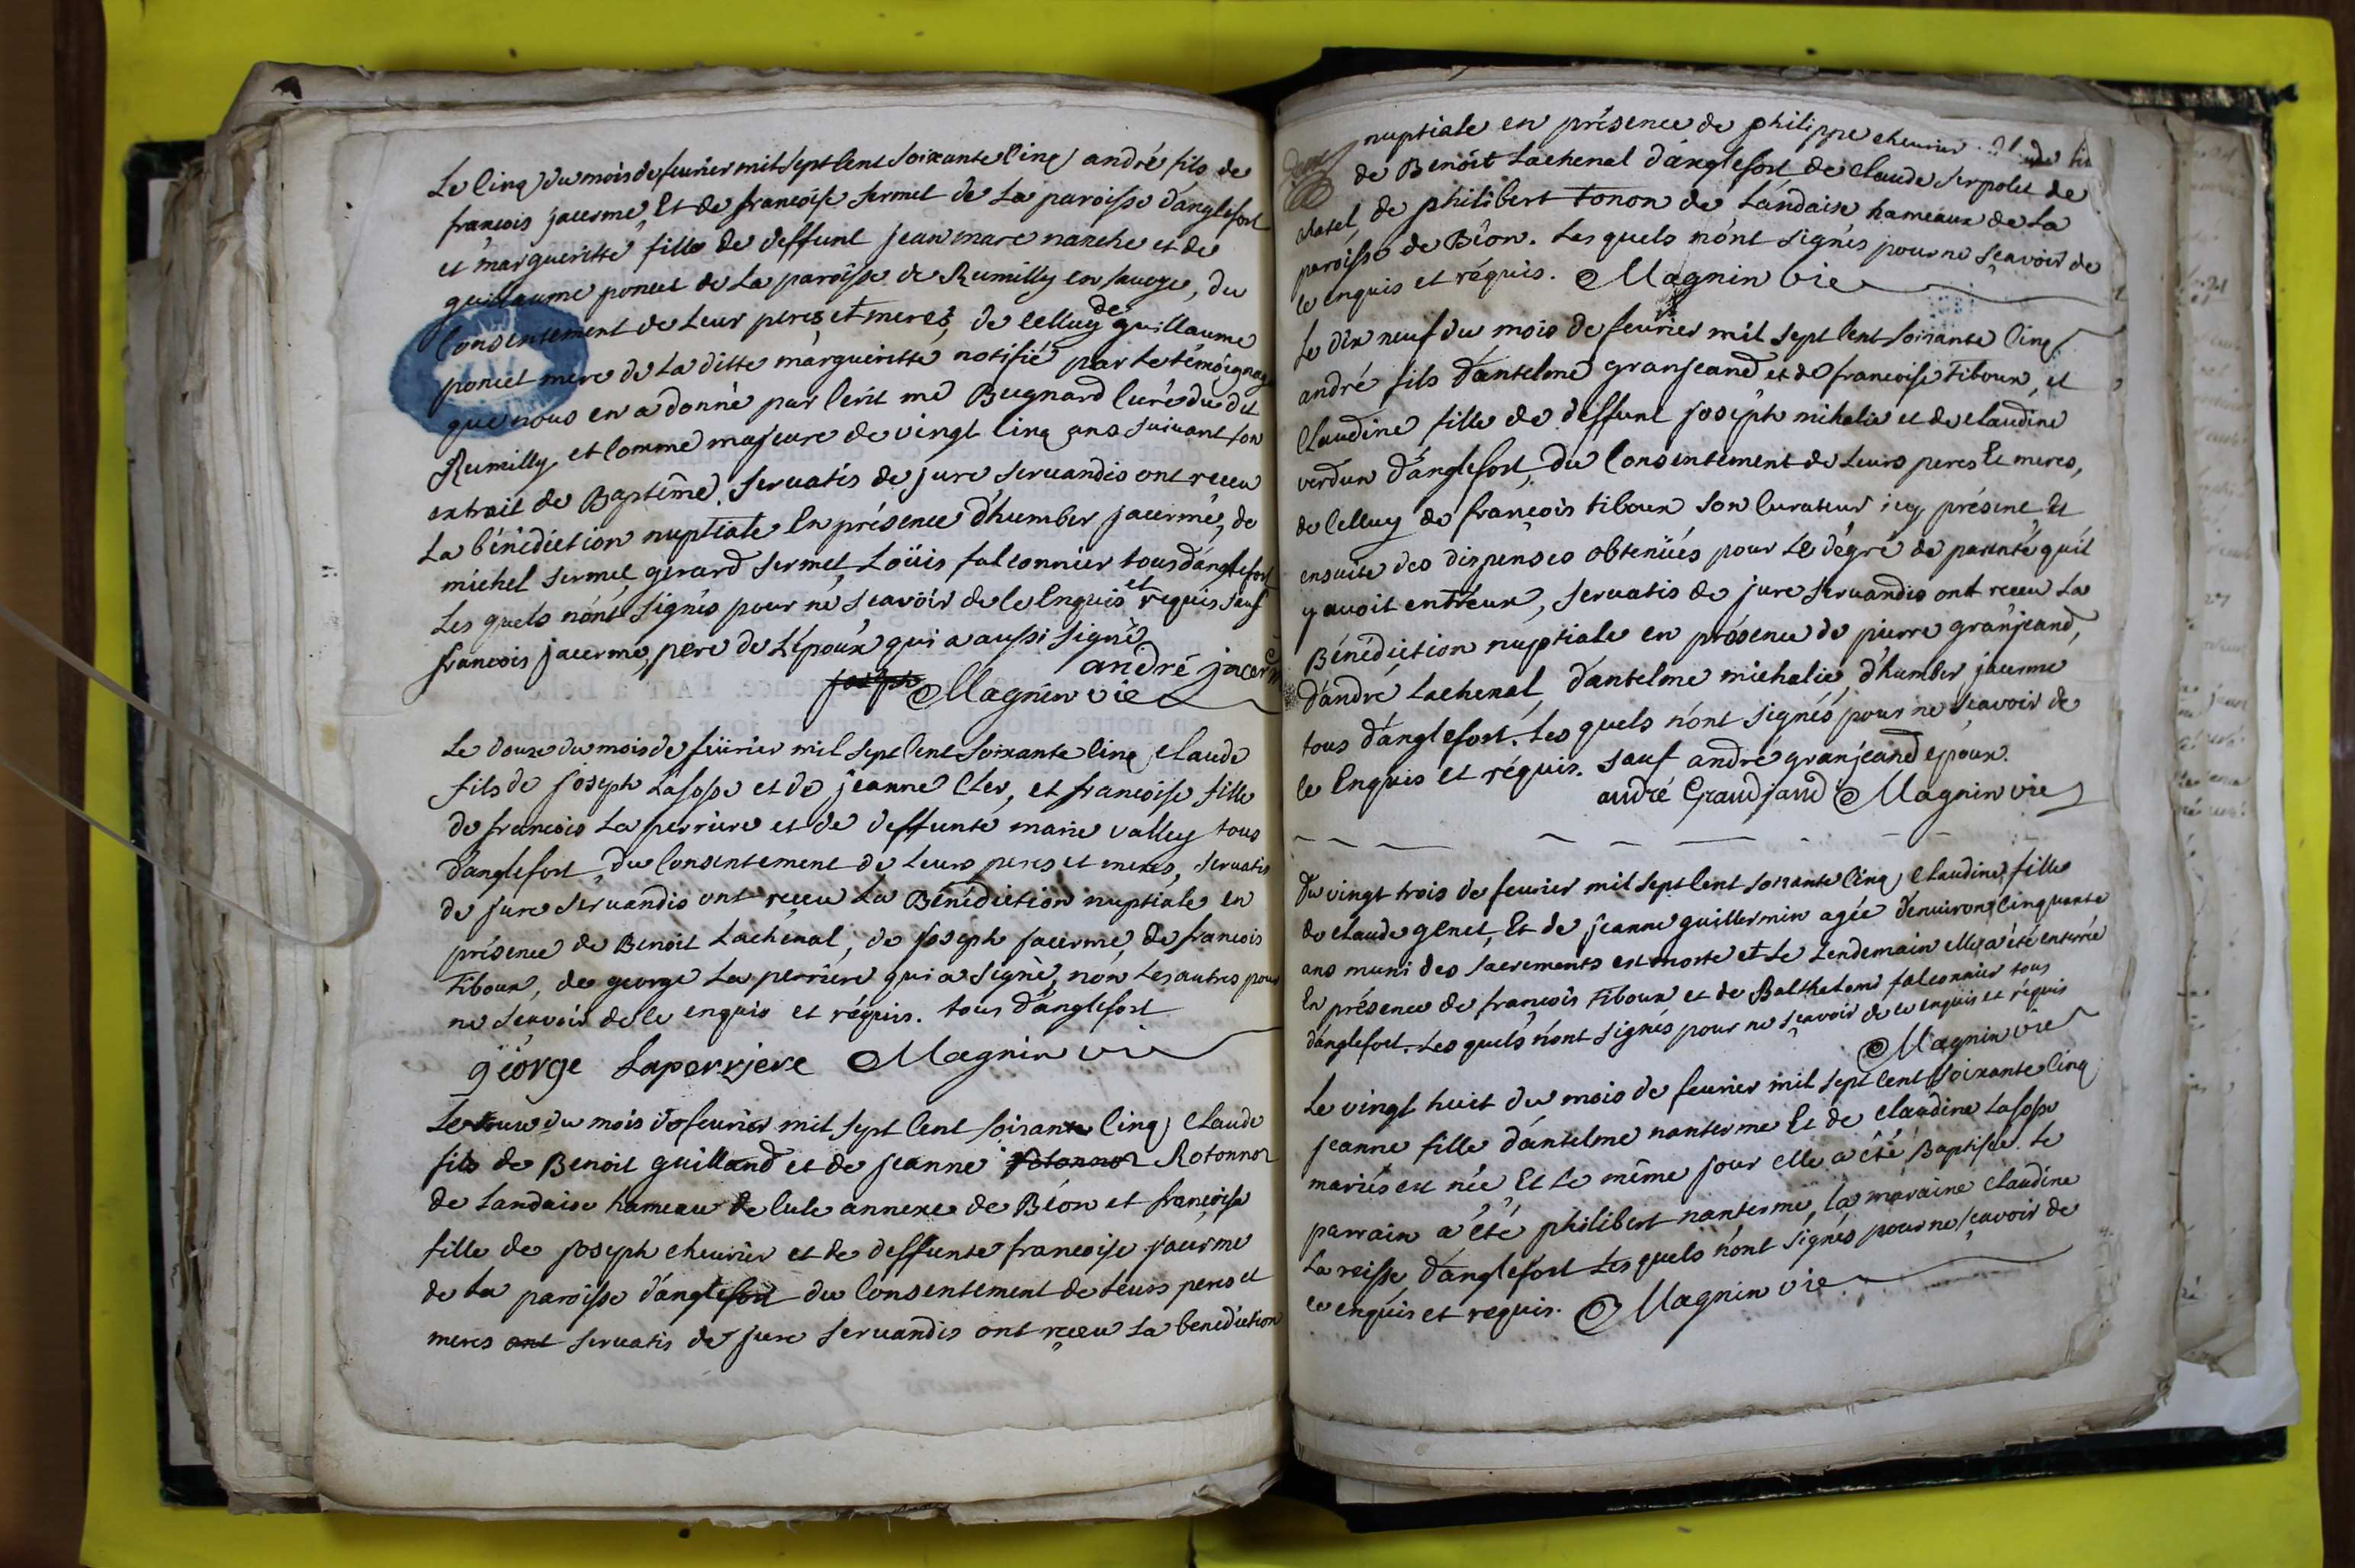 Le cinq du mois de feurier mil sept cent soixante cinq andré fils de
francois jacerme, Et de francoise sermet de La paroisse d'anglefort
et margueritte fille de deffunt jean marc nanche et de
guillaume poncet de La paroisse de Rumilly en sauoye, du
consentement de Leur peres et meres, de celluy de guillaume
poncet mere de La ditte margueritte notifié par Le témoignage
que nous en a donné par Ecrit me Bugnard curé du dit
Rumilly, et comme majeure de vingt cinq ans suivant son
extrait de Baptême. servatis de jure servandis ont receu
La bénédiction nuptiale En présence d'humber jacerme, de
michel sermet, gerard sermet, Loüis falconnier tous d'anglefort
Les quels n'ont signés pour ne sçavoir de ce Enquis et requis sauf
francois jacerme, pere de L'époux qui a aussi signé
andré jacerme
joseph Magnin vic
Le douze du mois de féurier mil sept cent soixante cinq Claude
fils de joseph Lasosse et de jeanne Cler, et francoise fille
de francois La perriere et de deffunte marie valley tous
d'anglefort, du consentement de Leurs peres et meres, servatis
de jure servandis ont receu La Bénédiction nuptiale en
présence de Benoit Lachenal, de joseph jacerme, de francois
Tiboux, de george La perriere qui a signé, non Les autres pour
ne sçavoir de ce enquis et réquis. tous d'anglefort
george Laperrjere Magnin vic
Le douze du mois de feurier mil sept cent soixante cinq Claude
fils de Benoit guilland et de jeanne Rotonnoz
de Landaise hameau de Cule annexe de Béon et françoise
fille de joseph cheurier et de deffunte francoise jacerme
de La paroisse d'anglefort du consentement de Leurs peres et
meres ont servatis de jure servandis ont receu La benediction
nuptiale en présence de philippe cheurier
de Benoit Lachenal d'anglefort de Claude serpolet de
de philibert Tonon de Landaise hameaux de La
paroisse de Béon. Les quels n'ont signés pour ne sçavoir de
ce enquis et réquis. Magnin vic
Le dix neuf du mois de feurier mil sept cent soixante cinq
andré fils d'antelme granjeand et de francoise Tiboux, et
Claudine fille de deffunt joseph mihalie et de claudine
verdun d'anglefort, du consentement de Leurs peres Et meres,
de celluy de françois tiboux son curateur icy présent Et
ensuite des dispenses obtenües pour Le dégré de parenté quil
y avoit entreux, servatis de jure servandis ont receu La
Bénédiction nuptiale en présence de pierre granjeand,
d'andré Lachenal, d'antelme michalie, d'humber jacerme
tous d'anglefort. Les quels n'ont signés pour ne sçavoir de
ce Enquis et réquis. sauf andré granjeand époux.
andré Grandjand Magnin vic
Du vingt trois de feurier mil sept cent soixante cinq Claudine fille
de claude genet, Et de jeanne guillermin agée d'environ cinquante
ans muni des sacrements est morte et Le Lendemain elle a été enterrée
En présence de françois Tiboux et de Balthelemi falconnier tous
d'anglefort. Les quels n'ont signés pour ne sçavoir de ce enquis et réquis
Magnin vic
Le vingt huit du mois de feurier mil sept cent soixante cinq
jeanne fille d'antelme nanterme Et de claudine Lasosse
mariés est née, Et Le même jour elle a été Baptisée. Le
parrain a été philibert nanterme, La maraine Claudine
La reisse, d'anglefort Les quels n'ont signés pour ne sçavoir de
ce enquis et requis. Magnin vic